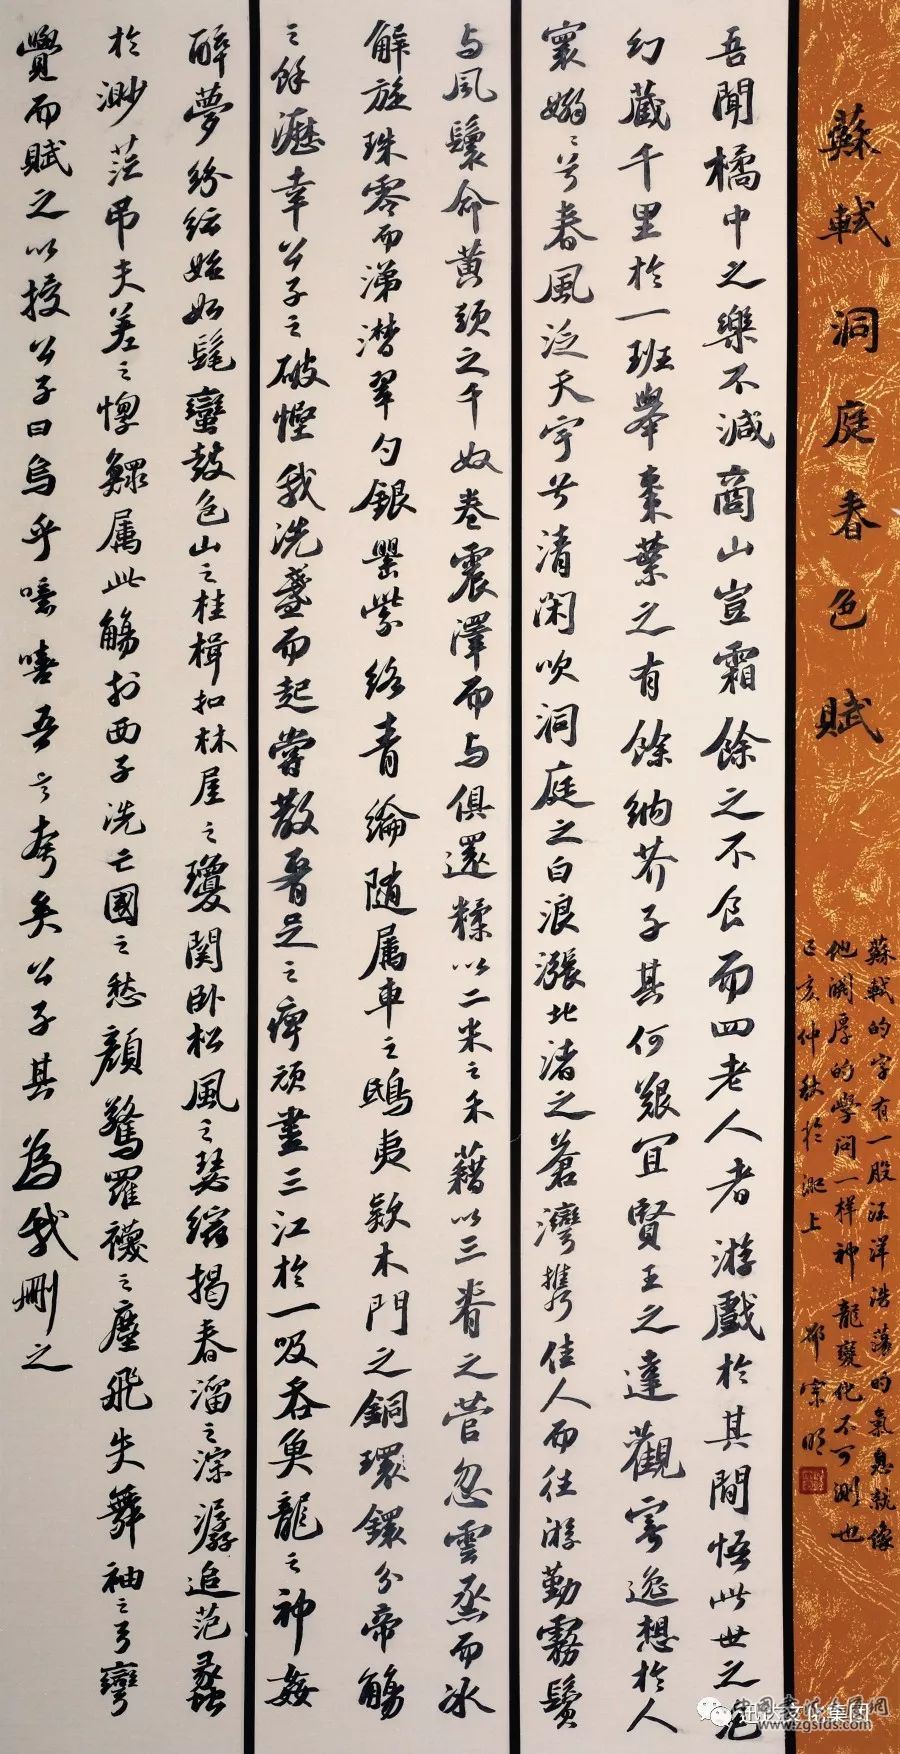 蘇軾洞庭春色賦
蘇軾的字有一股汪洋浩蕩的氣息就像
他渊厚的學问一样神龍變化不可測也
己亥仲秋於淝上 邵宗明
吾聞橘中之樂不減商山豈霜餘之不食而四老人者游戲於其間悟此世之泡
幻藏千里於一班舉棗葉之有餘納芥子其何艱宜賢王之達觀寄逸想於人
寰嫋〻兮春風泛天宇兮清閑吹洞庭之白浪漲北渚之蒼灣攜佳人而往游勤霧鬢
与風鬟命黃頭之千奴卷震澤而与俱還糅以二米之禾藉以三脊之菅忽雲烝而冰
解旋珠零而涕潸翠勺銀罌紫絡青綸随属車之鴟夷款木門之銅環鐶分帝觴
之餘瀝幸公子之破慳我洗盞而起嘗散腰足之痹頑盡三江於一吸吞魚龍之神姦
醉夢紛紜始如髦蠻鼓包山之桂楫扣林屋之瓊関卧松風之瑟縮揭春溜之淙潺追范蠡
於渺茫吊夫差之惸鰥属此觴於西子洗亡國之愁顏驚羅襪之塵飛失舞袖之弓彎
覺而賦之以授公子曰烏乎噫嘻吾言夸矣公子其為我刪之
江淮文化集团
中国书法大厦网
www.zgsfds.com